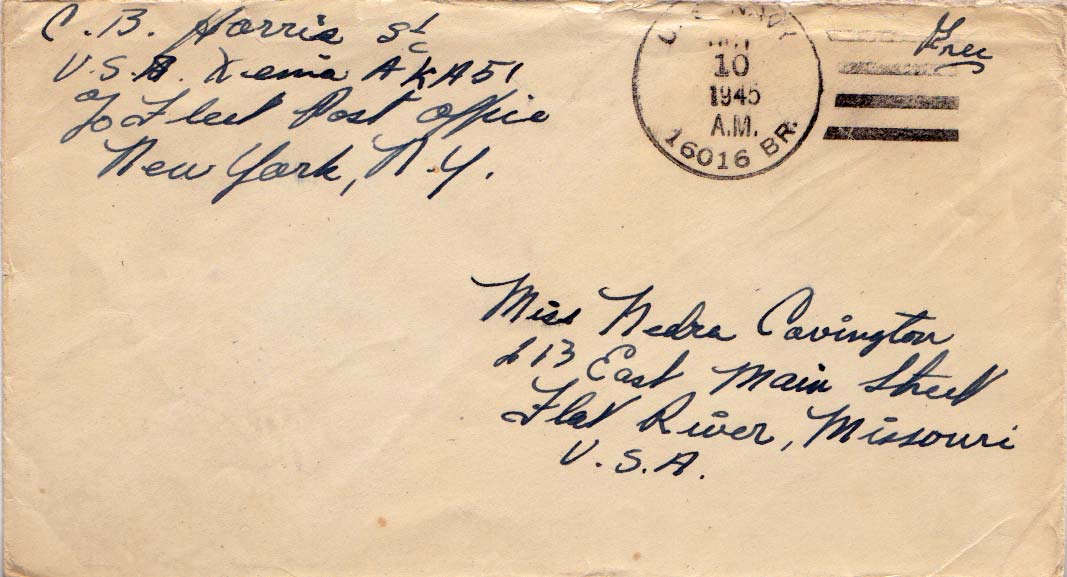 C. B. Harris S1/c
U.S.S. Xenia AKA51
℅ Fleet Post Office
New York, N.Y.
U.S. NAVY
10
1945
A.M.
16016 BR.
Free
Miss Nedra Covington
213 East Main Street
Flat River, Missouri
U.S.A.